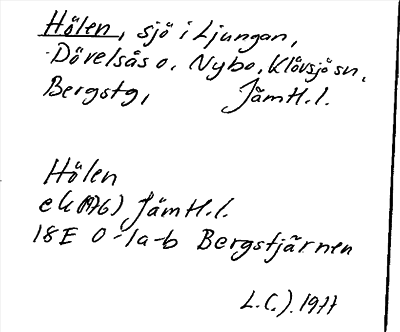 Hölen, sjö i Ljungan,
Dövelsås o. Nybo, Klövsjö sn,
Bergstg, Jämtl.l.
Hölen
ek (1976) Jämtl.l.
18E 0-1a-b Bergstjärnen
L.C.J. 1977